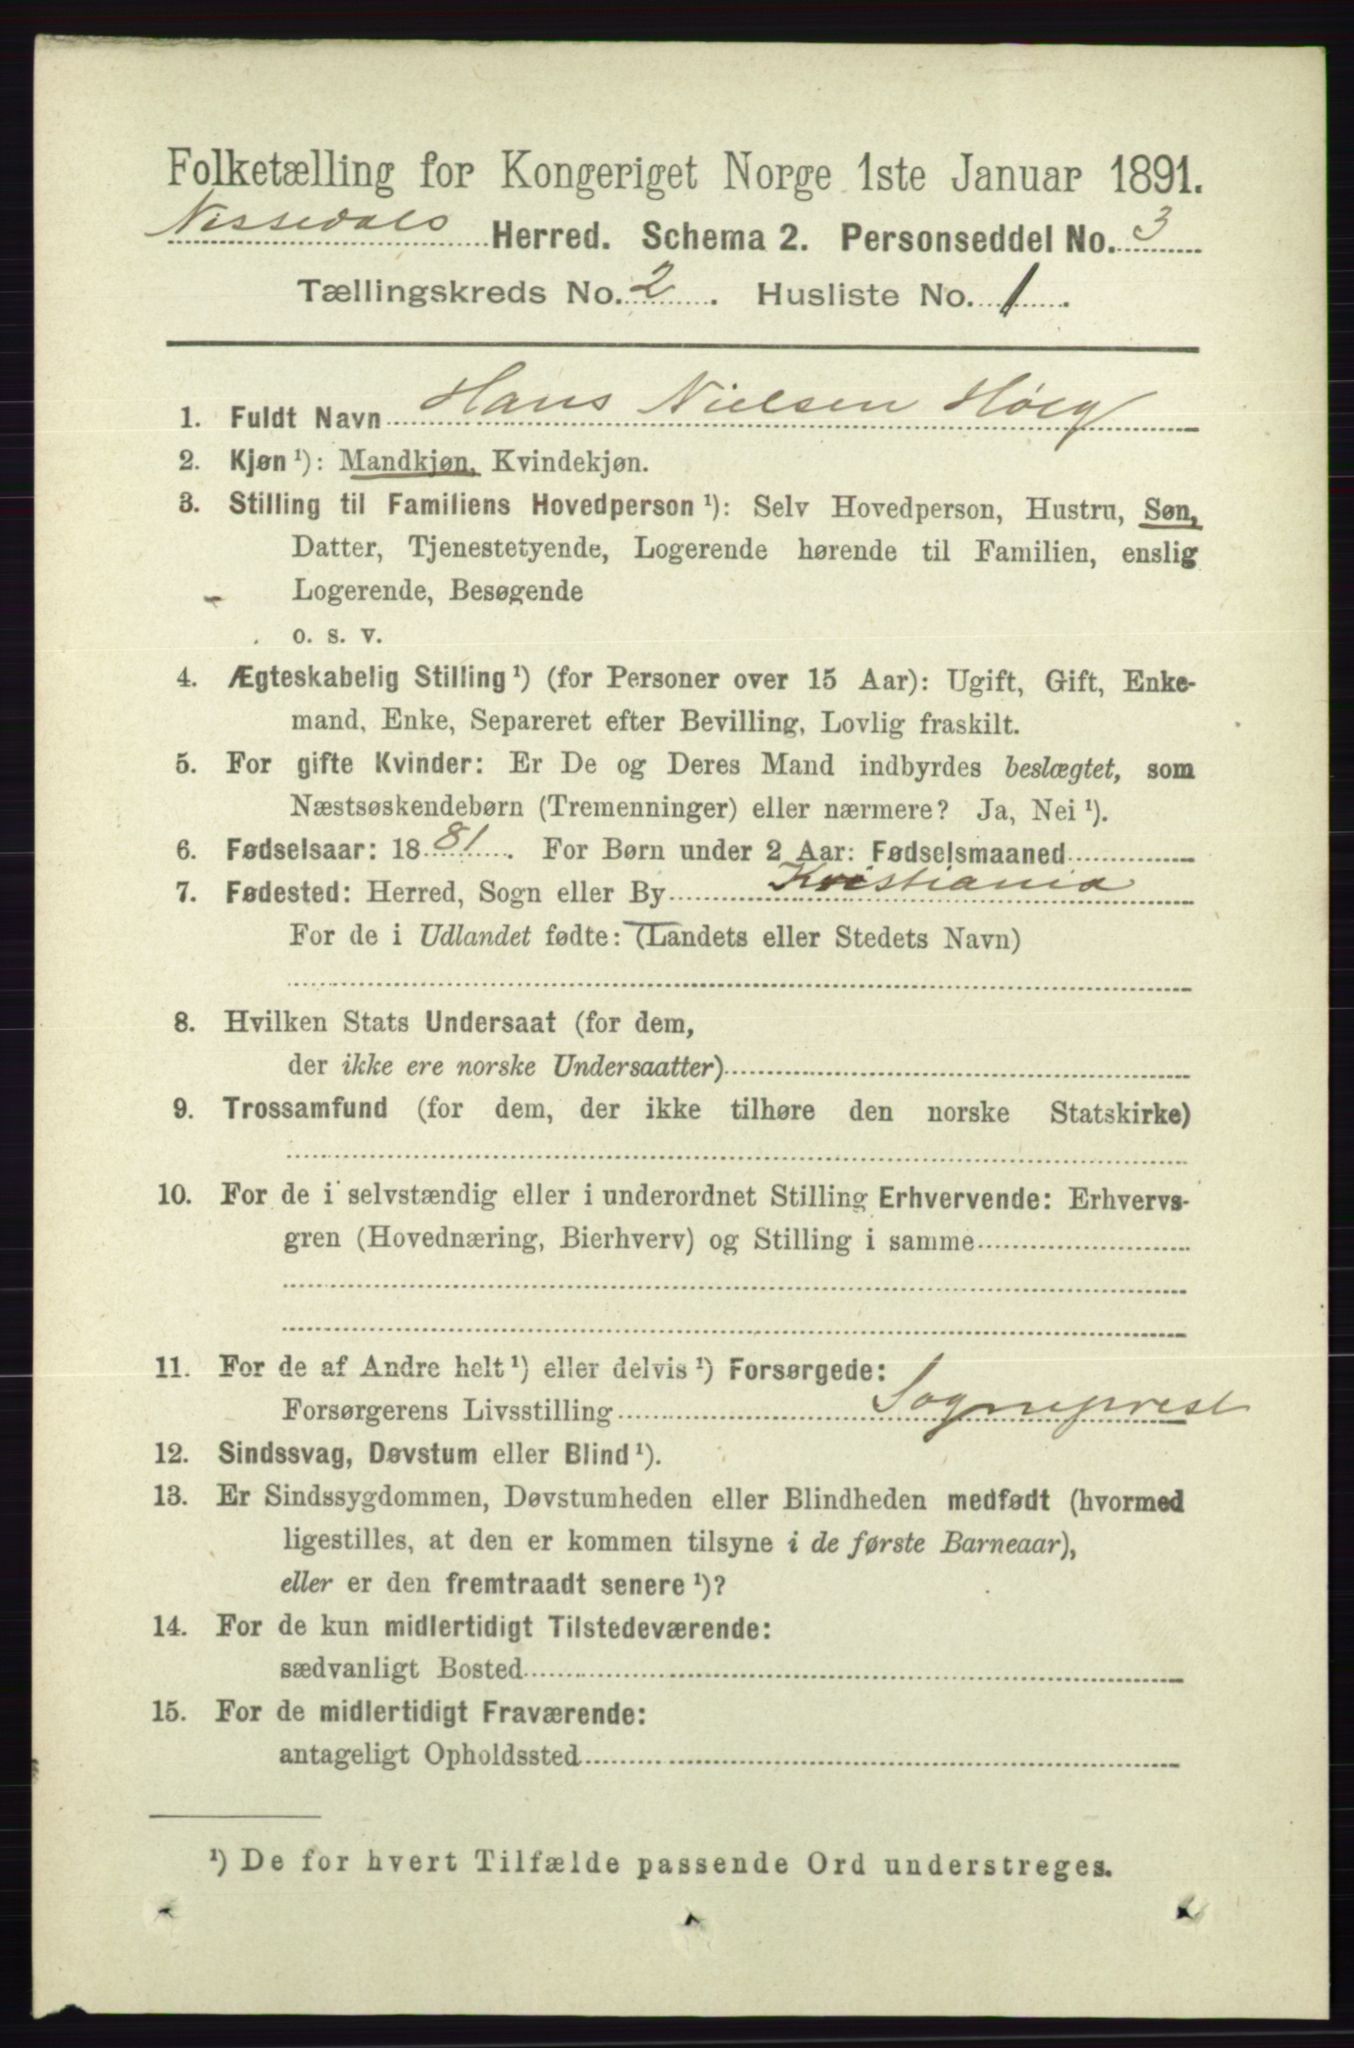 Folketælling for Kongeriget Norge 1ste Januar 1891.
Nissedals Herred. Schema 2. Personseddel No. 3
Tællingskreds No. 2. Husliste No. 1.
1. Fuldt Navn Hans Nielsen Høeg
2. Kjøn ¹): Mandkjøn, Kvindekjøn.
3. Stilling til Familiens Hovedperson ¹): Selv Hovedperson, Hustru, Søn,
Datter, Tjenestetyende, Logerende hørende til Familien, enslig
Logerende, Besøgende
o. s. v.
4. Ægteskabelig Stilling ¹) (for Personer over 15 Aar): Ugift, Gift, Enke-
mand, Enke, Separeret efter Bevilling, Lovlig fraskilt.
5. For gifte Kvinder: Er De og Deres Mand indbyrdes beslægtet, som
Næstsøskendebørn (Tremenninger) eller nærmere? Ja, Nei ¹).
6. Fødselsaar: 1881. For Børn under 2 Aar: Fødselsmaaned
7. Fødested: Herred, Sogn eller By Kristiania
For de i Udlandet fødte: (Landets eller Stedets Navn)
8. Hvilken Stats Undersaat (for dem,
der ikke ere norske Undersaatter)
9. Trossamfund (for dem, der ikke tilhøre den norske Statskirke)
10. For de i selvstændig eller i underordnet Stilling Erhvervende: Erhvervs-
gren (Hovednæring, Bierhverv) og Stilling i samme
11. For de af Andre helt ¹) eller delvis ¹) Forsørgede:
Forsørgerens Livsstilling Sogneprest
12. Sindssvag, Døvstum eller Blind ¹).
13. Er Sindssygdommen, Døvstumheden eller Blindheden medfødt (hvormed
ligestilles, at den er kommen tilsyne i de første Barneaar),
eller er den fremtraadt senere ¹)?
14. For de kun midlertidigt Tilstedeværende:
sædvanligt Bosted
15. For de midlertidigt Fraværende:
antageligt Opholdssted
¹) De for hvert Tilfælde passende Ord understreges.